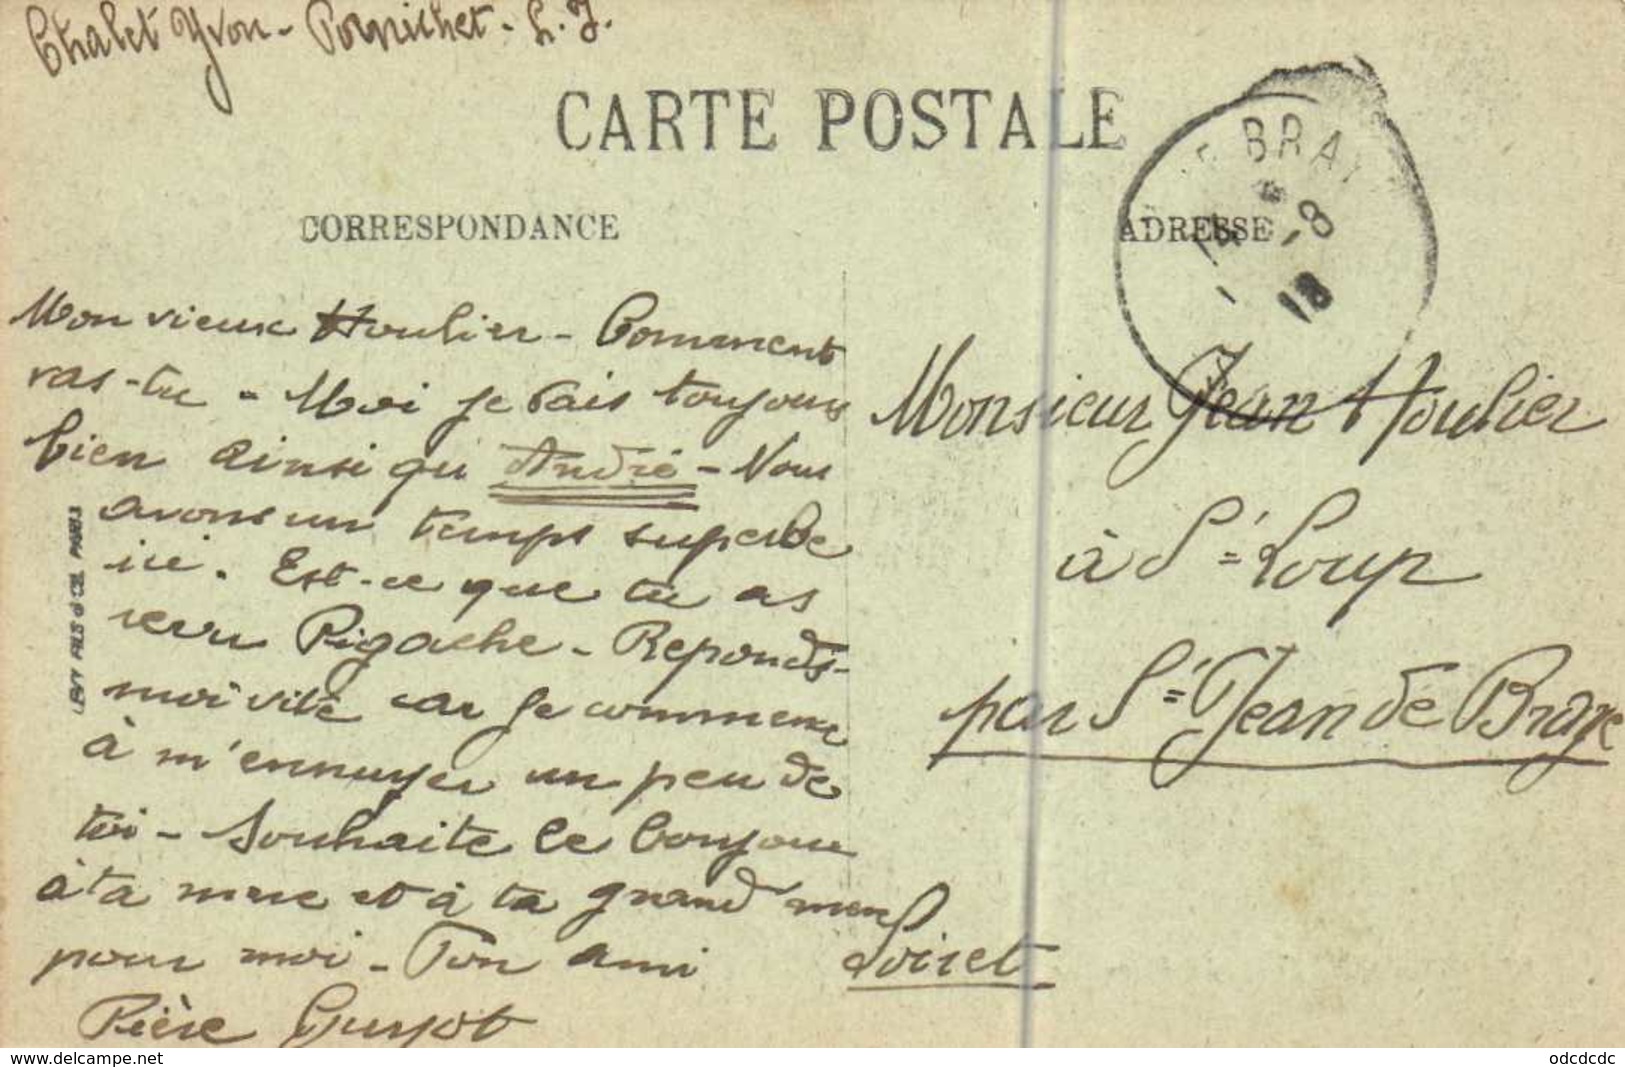 Chalet Yvon - Pornichet - L. I.
CARTE POSTALE
CORRESPONDANCE
ADRESSE
E BRAY
-8
18
Mon vieux Houlier - Comment
vas-tu - Moi je vais toujours
bien ainsi qu André - Nous
avons un temps superbe
ici. Est-ce que tu as
revu Pigache - Reponds-
moi vite car je commence
à m'ennuyer un peu de
toi - Souhaite le bonjour
à ta mere et à ta grand mere
pour moi - Ton ami
Pière Guyot
Monsieur Jean Houlier
à St Loup
par St Jean de Braye
Loiret
LEVY FILS & Cie PARIS
www.delcampe.net
odcdcdc